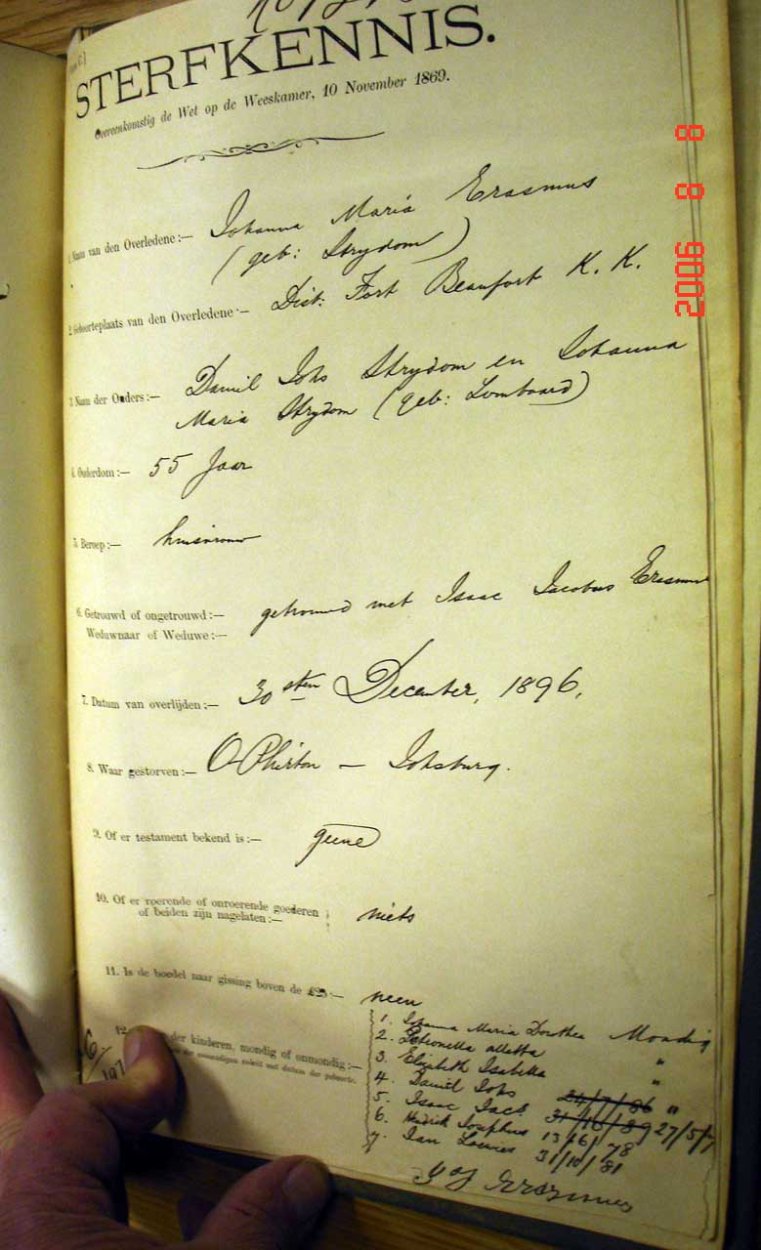 STERFKENNIS.
Overeenkomstig de Wet op de Weeskamer, 10 November 1869.
1. Naam van den Overledene:— Johanna Maria Erasmus
(geb: Strydom)
2. Geboorteplaats van den Overledene:— Dist: Fort Beaufort K. K.
3. Naam der Ouders:— Daniel Johs Strydom en Johanna
Maria Strydom (geb: Lombaard)
4. Ouderdom:— 55 Jaar
5. Beroep:— huisvrouw
6. Getrouwd of ongetrouwd:— getrouwd met Isaac Jacobus Erasmus
Weduwnaar of Weduwe:—
7. Datum van overlijden:— 30sten December, 1896.
8. Waar gestorven:— Ophirton — Johsburg.
9. Of er testament bekend is:— geene
10. Of er roerende of onroerende goederen
of beiden zijn nagelaten:— niets
11. Is de boedel naar gissing boven de £25:— neen
12. der kinderen, mondig of onmondig:—
1. Johanna Maria Dorothea Mondig
2. Petronella Aletta "
3. Elizabeth Isabella "
4. Daniel Johs 24/7/86 "
5. Isaac Jacb. 31/10/89 27/5/7
6. Hendrik Josephus 13/6/78
7. Jan Louries 31/10/81
Erasmus
2006 8 8